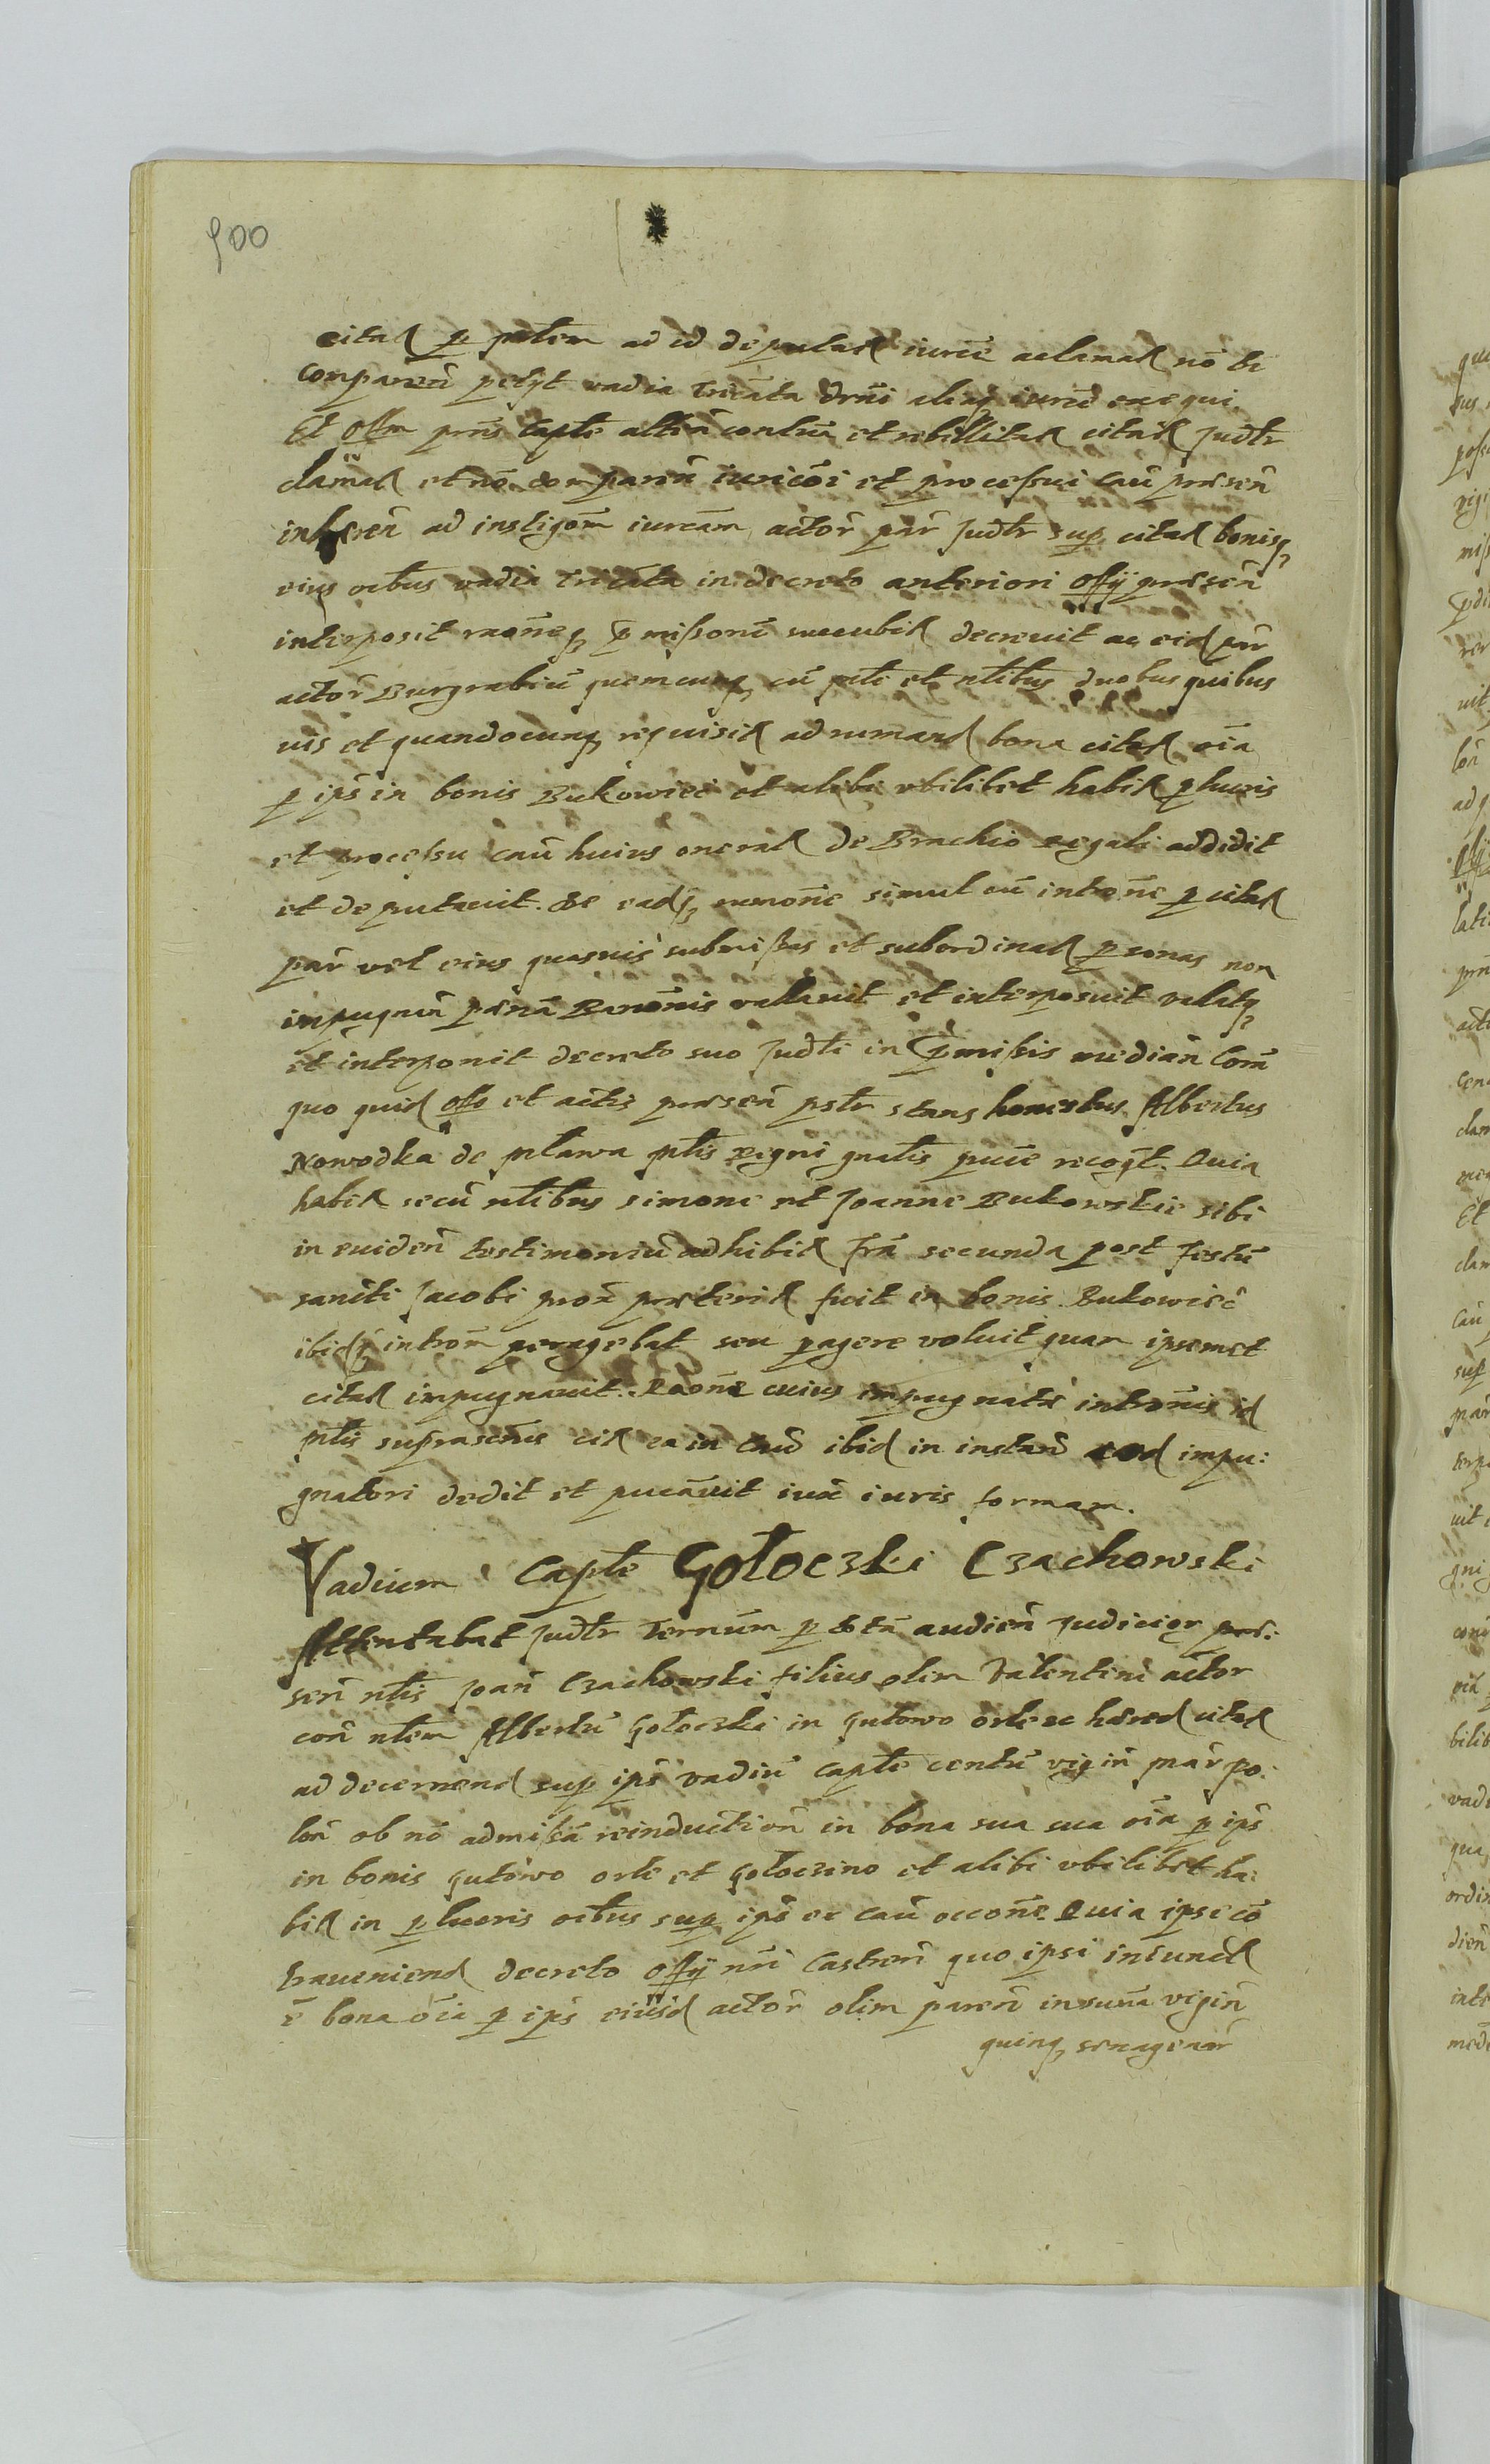 900
citat p ptlem ad id deputat iurīe aclamat nō tn
comparen petyt vadia tricāta drni aliaq iurīd exequi
Et offm prns captle altrā contūm et rebellitat citati Judtr
clamat et nō comparen iuricōi et processui cau praesen
inhaeren ad instigōm iureām actor par Judtr sup citat bonisq
eius oibus vadia tricata in decreto anteriori offy praesen
interposit raōneq pmissorū succubit decreuit ac eid par
actor Burgrabiū quemcunq cū ptle et ntlibus duobus quibus
uis et quandocunq requisit ad rumand bona citat oīa
p ips in bonis Bukowiec et alibi vbilibet habit p lucris
et processu cau huius onerat de Brachio regali addidit
et deputauit. De eadq rumōne simul cū intrōne p citat
par vel eius quasuis submissas et subordinat psonas non
inpugnan paenā Banōnis vallauit et interposuit valatq
et interponit decreto suo Judtli in pmissis median Com
quo quid offo et actis praesen pstr stans honestus Albertus
Nowodka de Mlawa ptlis regni gnatlis pūce recogt. Quia
habit secū ntlibus simone et Joanne Bukowskie sibi
in euiden testimoniū adhibit frā secunda post festū
sancti Jacobi prox praeterit fuit in bonis Bukowiec
ibidq introm peragebat seu pagere voluit quam ipsemet
citat inpugnauit. Raōne cuius inpugnatae intrōnis id
ptlis suprascrūs cit ea in Cau ibid in instan eod inpu:
gnatori dedit et pucāuit iux iuris formam.
Vadium Captle Gołoczki Czachowski
Attentabat Judtr Ternūm p totā audien Judicior prae:
sen ntlis Joan Czachowski filius olim Valentini actor
con ntlem Albertū Gołoczki in Gutowo Orle ec haered citat
ad decernend sup ips vadiū captle centū vigin mar po:
lon ob nō admissā reinductiōn in bona sua sua oīa p ips
in bonis Gutowo Orle et Gołoczino et alibi vbilibet ha:
bit in p lucris oibus sup ips ec cau occōne Quia ipse cō
traueniend decreto offy nri Castren quo ipsi iniunct
ē bona oīa p ips eiusd actor olim paren in suma vigin
quinq sexagenar